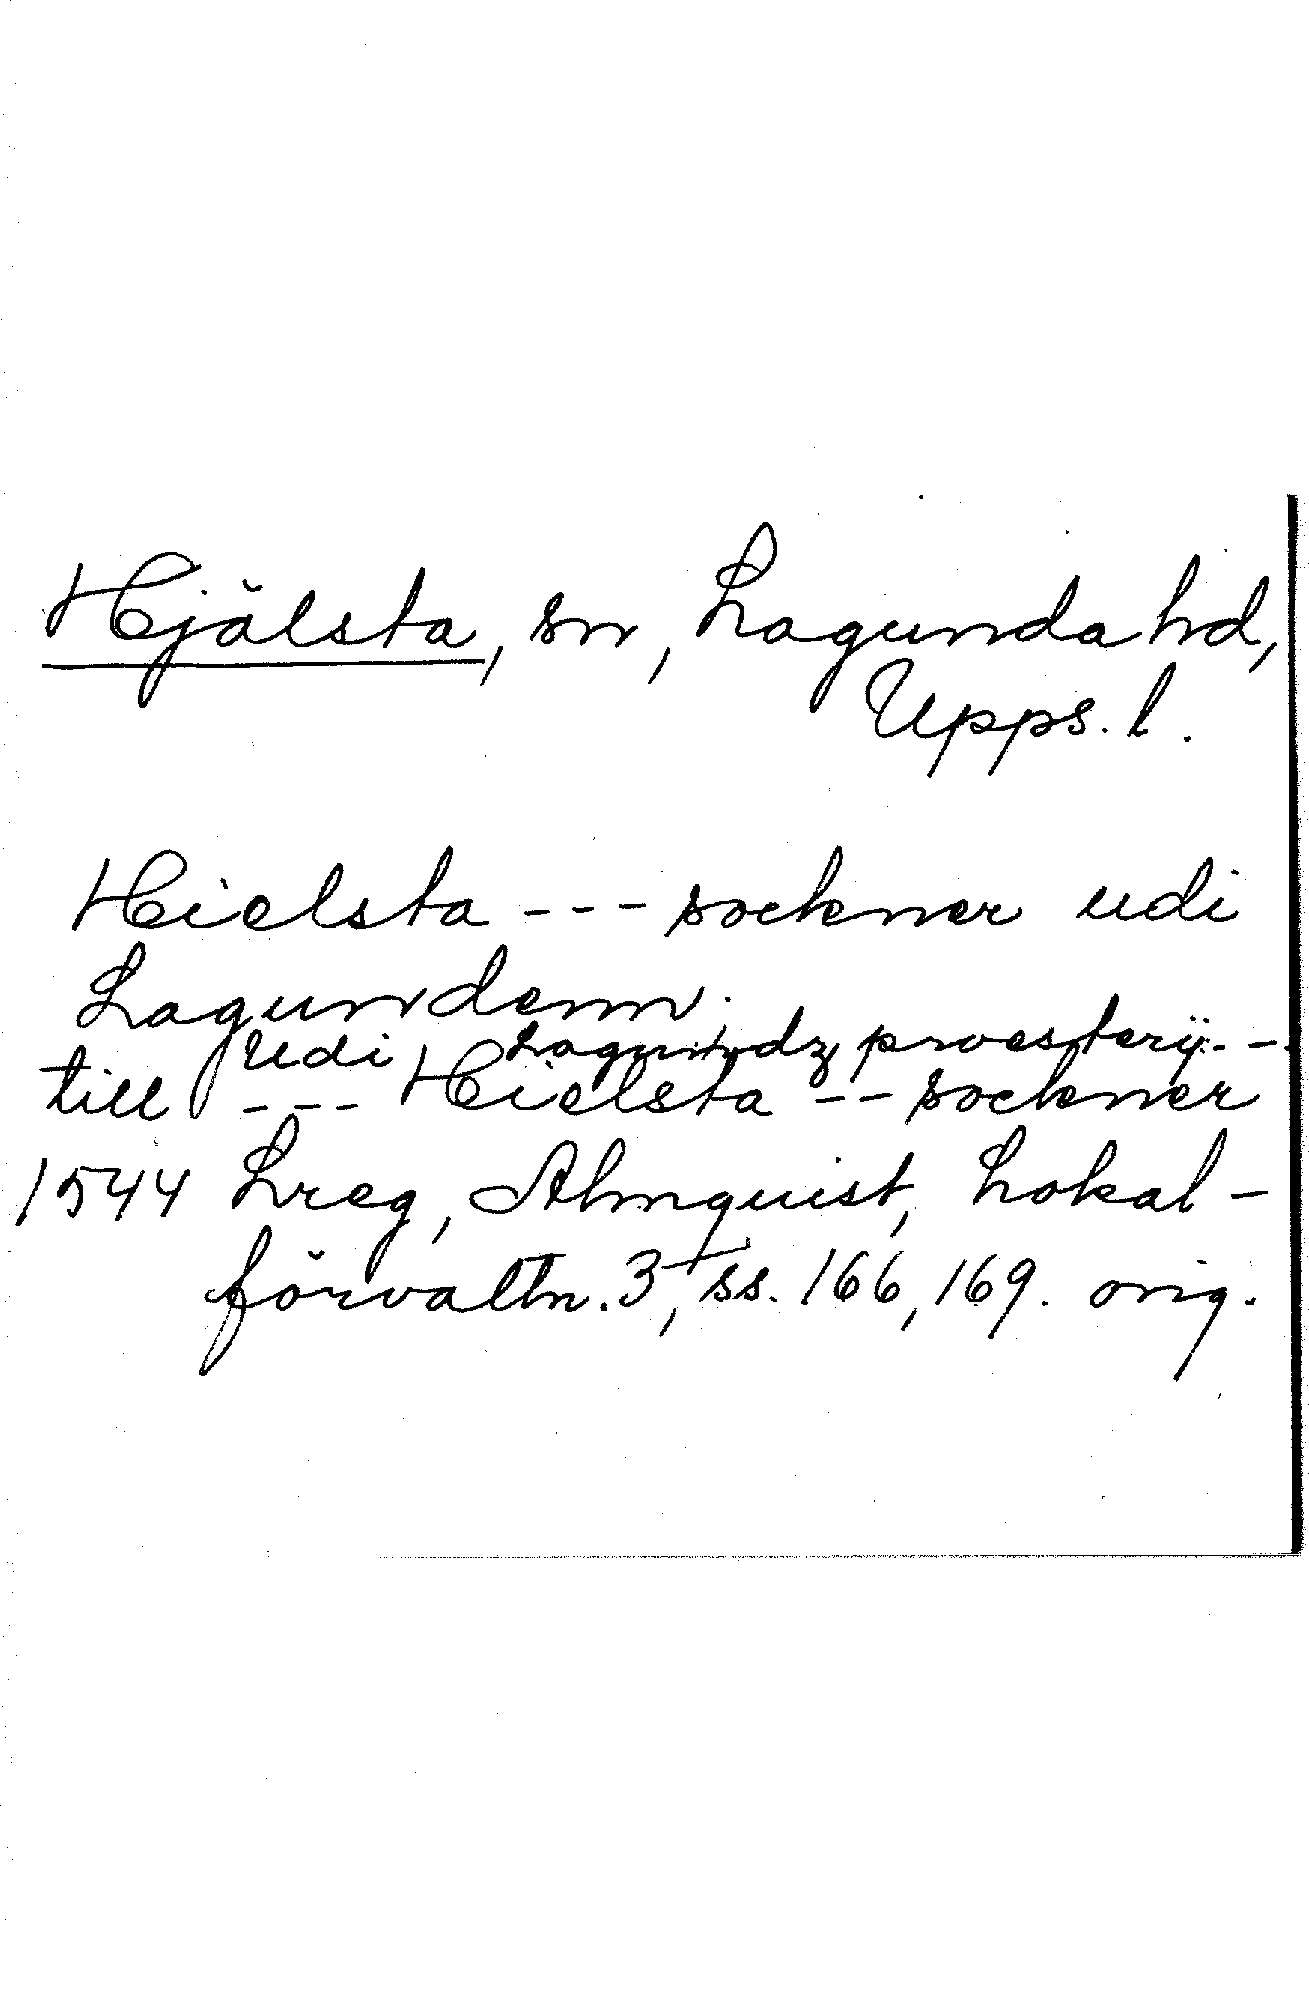 Hjälsta, sn, Lagunda hd,
Upps. l.
Hielsta --- sockner udi
Lagundenn.
Udi Lagundz proesterij --
till --- Hielsta -- sockner
1544 Lreg, Almquist, Lokal-
förvaltn. 3, ss. 166, 169. orig.